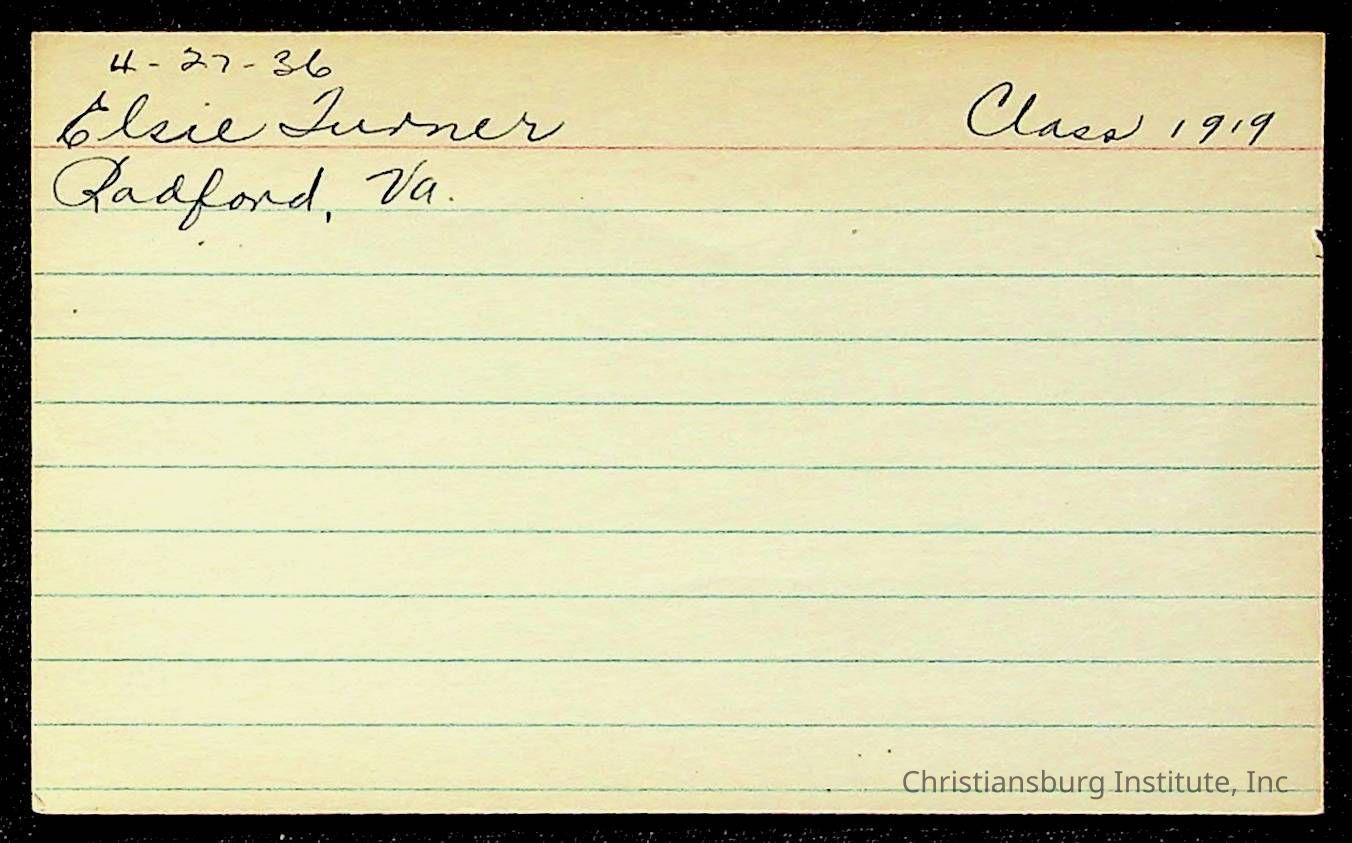 4-27-36
Elsie Turner Class 1919
Radford, Va.
Christiansburg Institute, Inc